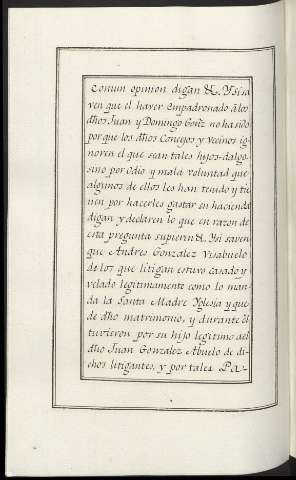 comun opinion digan &. Ysi sa
ven que el haver empadronado a los
dhos Juan y Domingo Gonz no ha sido
por que los dhos Concejos y Vecinos ig-
noren el que sean tales hijos-dalgo
sino por Odio y mala voluntad que
algunos de ellos les han tenido y tie
nen por hacerles gastar su hacienda
digan y declaren lo que en razon de
esta pregunta supieren &. Ysi saven
que Andres Gonzalez Visabuelo
de los que litigan estuvo casado y
velado legitimamente como lo man-
da la Santa Madre Yglesia y que
de dho matrimonio, y durante el
tuvieron por su hijo legitimo a el
dho Juan Gonzalez Abuelo de di-
chos litigantes, y por tales Pa-